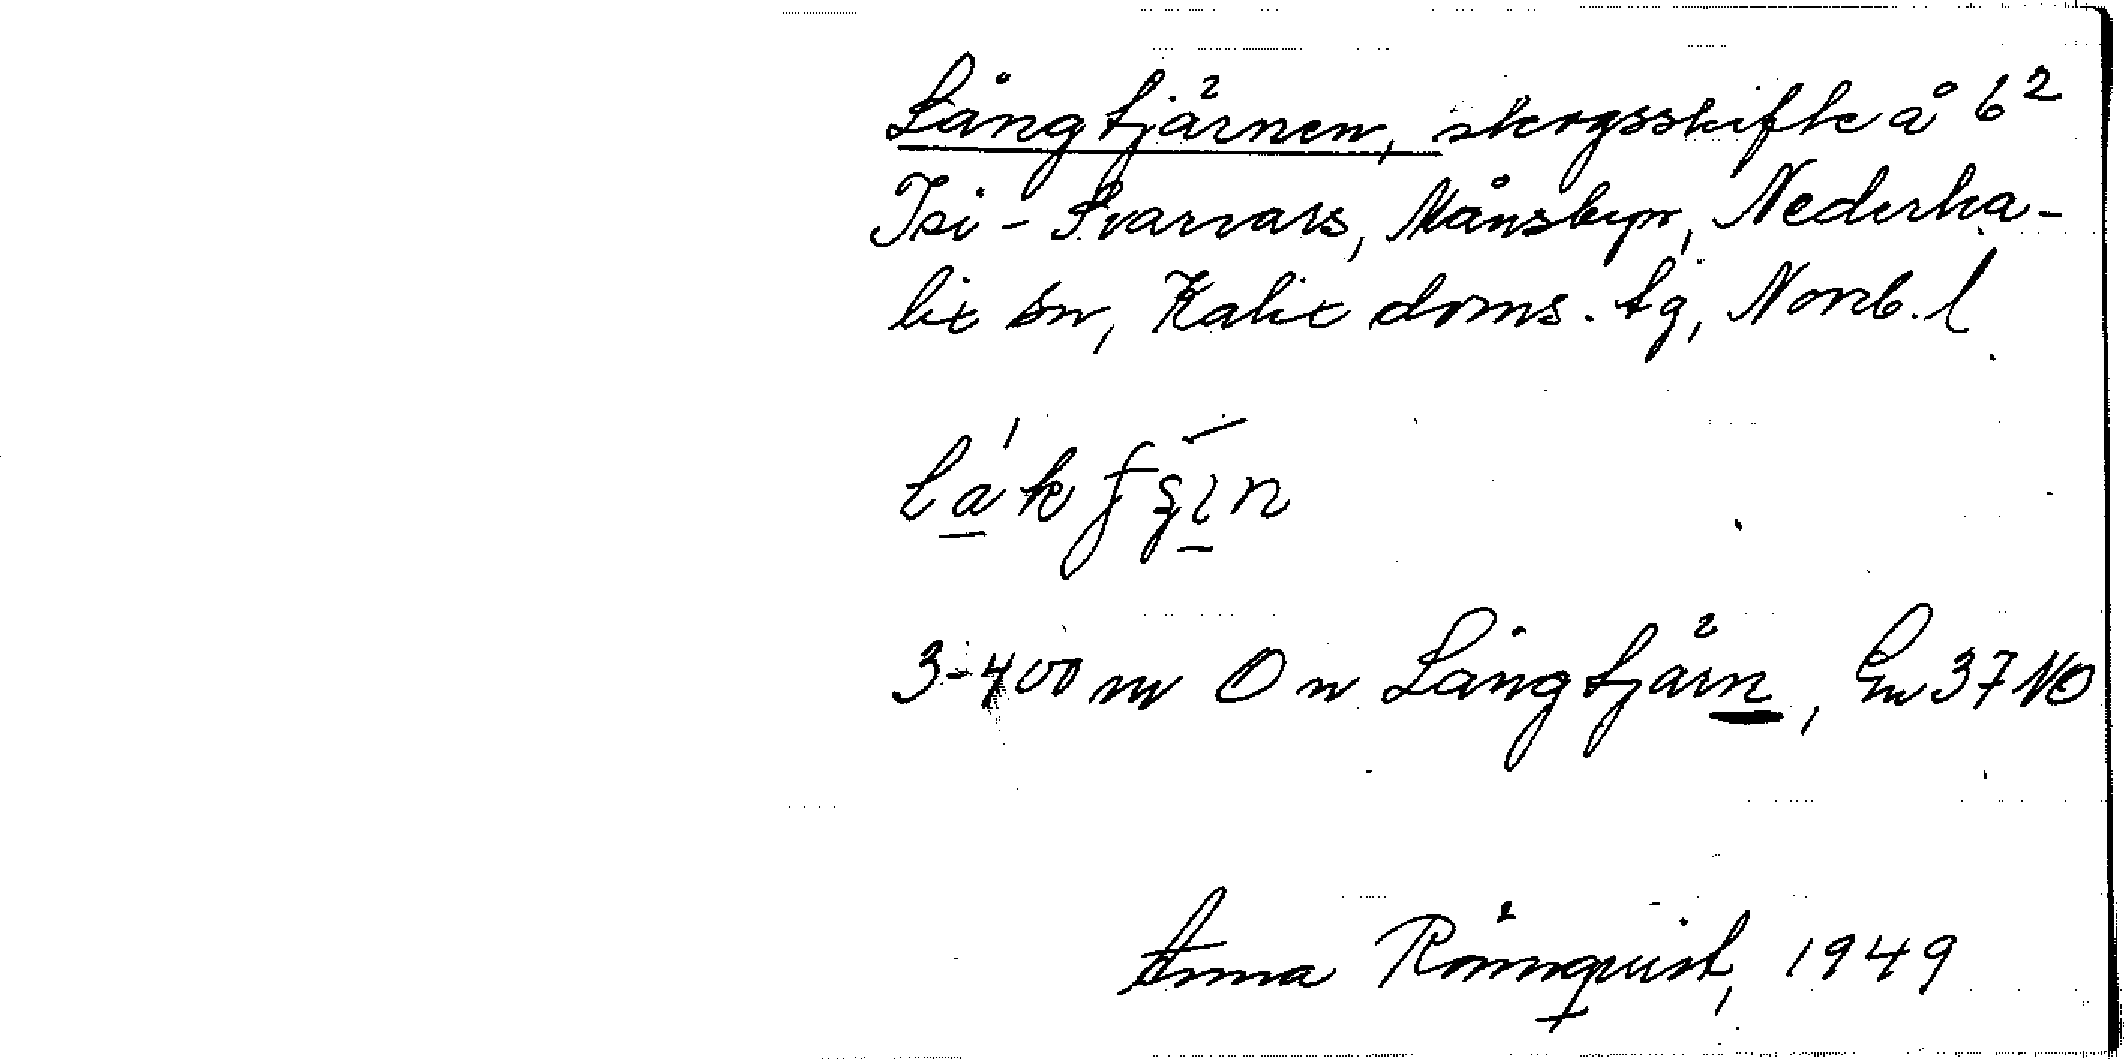 Långtjärnen, skogsskifte å 6²
Isi-Svarvars, Månsbyn, Nederka-
lix sn, Kalix doms. tg, Norrb. l
3-400 m O n Långtjärn, En 37 NO
Anna Rönnquist, 1949